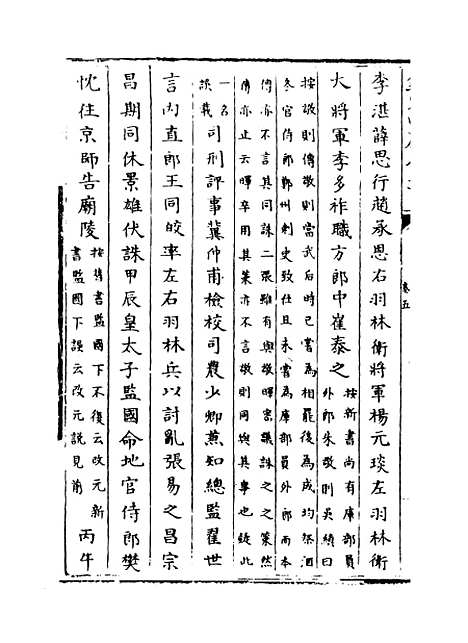 李湛薛思行趙承恩右羽林衛將軍楊元琰左羽林衛
大將軍李多祚職方郎中崔泰之
按新書尚有庫部員
外郎朱敬則吳縝曰
按敬則傳敬則當武后時已嘗為相罷後為成均祭酒
冬官侍郎鄭州刺史致仕且未嘗為庫部員外郎而本
傳亦不言其同誅二張雖有與敬暉密議誅之之策然
傳亦止云暉卒用其策亦不言敬則同與其事也疑此
一名
誤載
司刑評事冀仲甫檢校司農少卿兼知總監翟世
言內直郎王同皎率左右羽林兵以討亂張易之昌宗
昌期同休景雄伏誅甲辰皇太子監國命地官侍郎樊
忱往京師告廟陵
按舊書監國下不復云改元新
書監國下誤云改元說見前
丙午
卷五